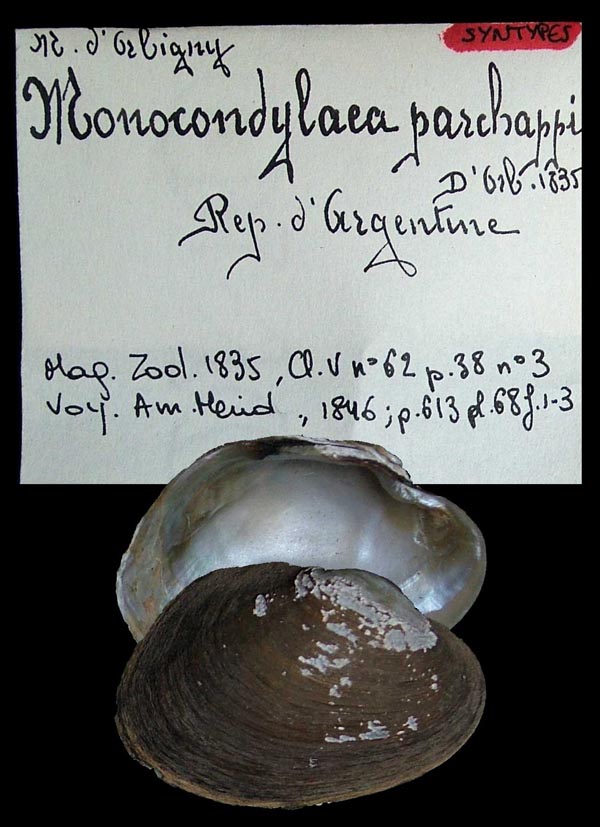 M. d'Orbigny
SYNTYPES
Monocondylaea parchappi
D'Orb. 1835
Rep. d'Argentine
Mag. Zool. 1835, Cl. V n° 62 p. 38 n° 3
Voy. Am. Merid., 1846; p. 613 pl. 68 f. 1-3